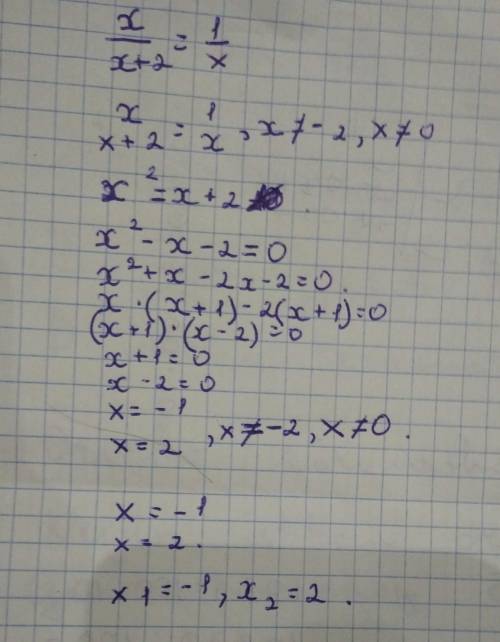 x/x+2 = 1/x
x/x+2 = 1/x, x≠-2, x≠0
x²=x+2 .
x²-x-2=0
x²+x-2x-2=0.
x·(x+1)-2(x+1)=0
(x+1)·(x-2)=0
x+1=0
x-2=0
x=-1
x=2 , x≠-2, x≠0.
x=-1
x=2.
x1=-1, x₂=2.